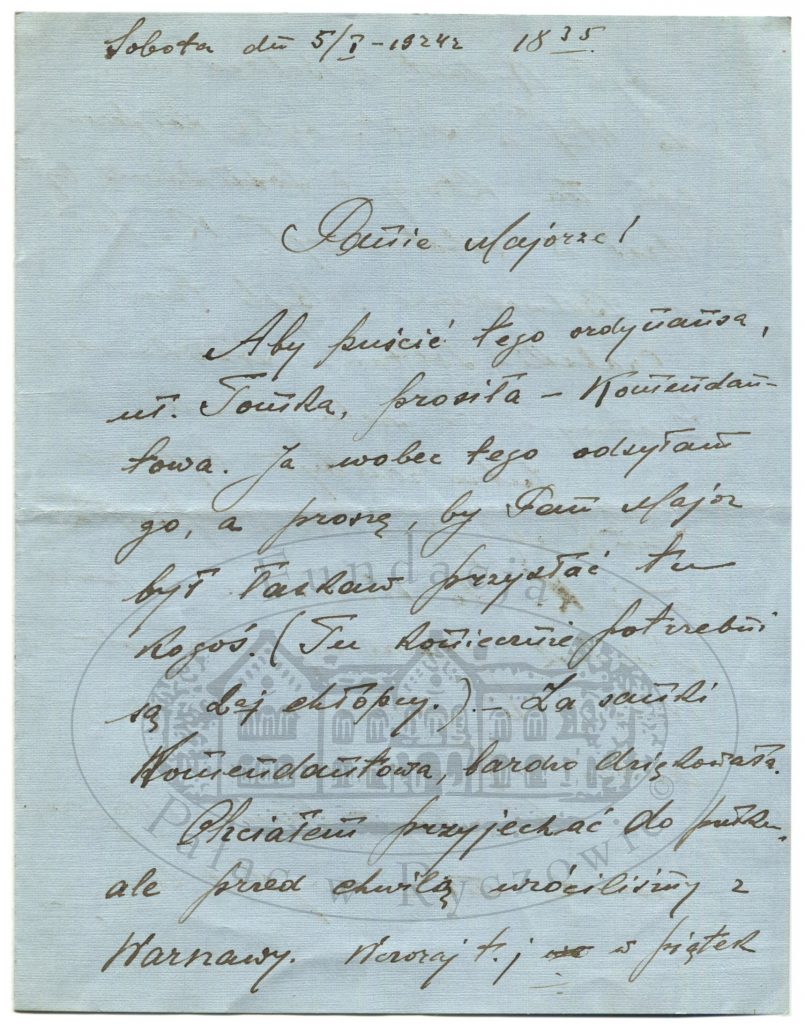 Sobota dn 5/I – 1924r 18 35.
Panie Majorze!
Aby puścić tego ordynansa,
uł. Tomka, prosiła – Komendan-
towa. Ja wobec tego odsyłam
go, a proszę, by Pan Major
był łaskaw przysłać tu
kogoś. (Tu koniecznie potrzebni
są dwaj chłopcy.) – Za sanki
Komendantowa, bardzo dziękowała.
Chciałem przyjechać do pułku,
ale przed chwilą wróciliśmy z
Warszawy. Wczoraj t. j w piątek
Fundacja
Pałac w Ryczowie
©